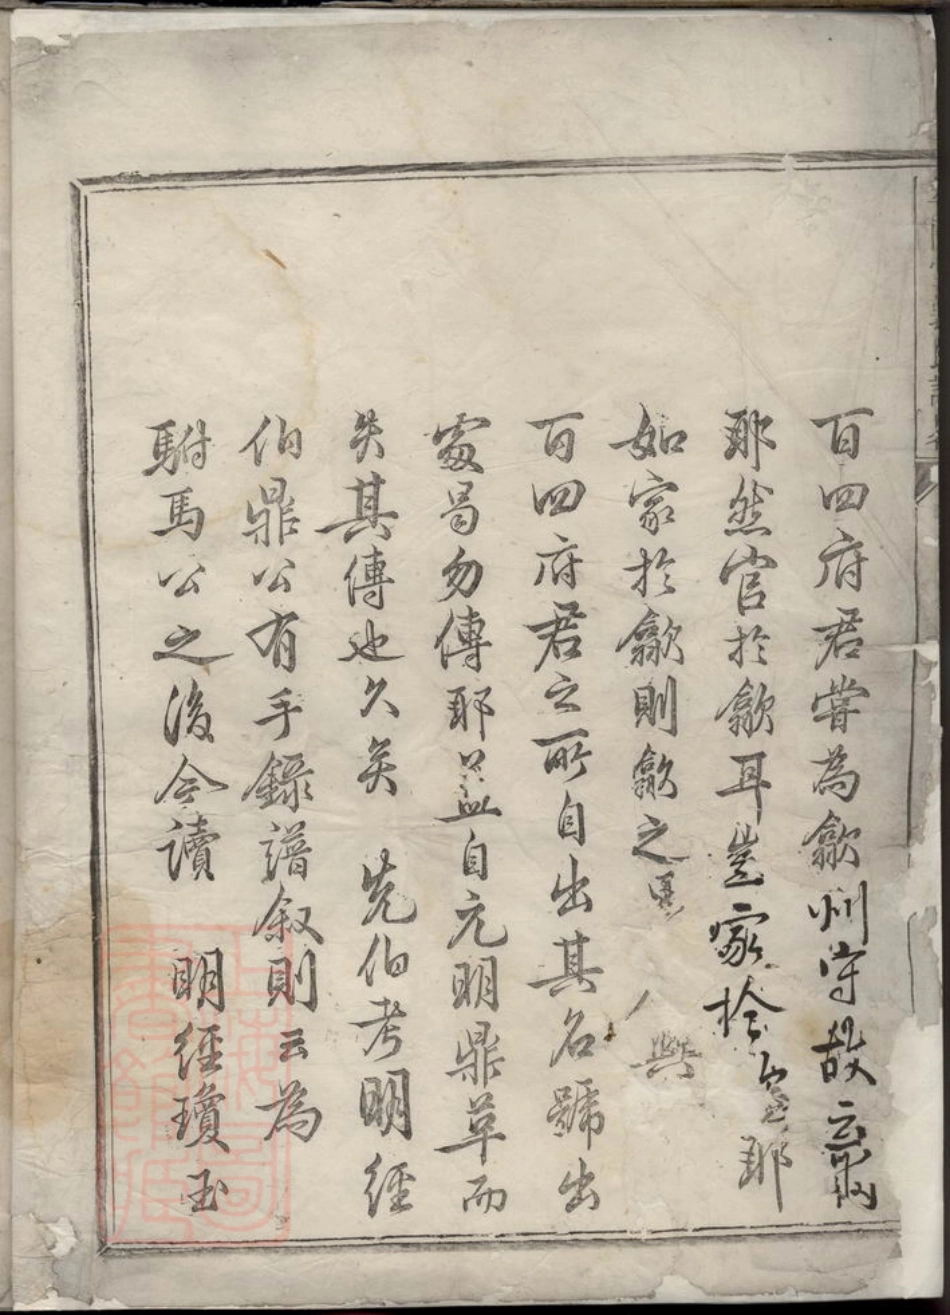 百四府君嘗為歙州守故云爾
耶然官於歙耳豈家於歙耶
如家於歙則歙之 與
百四府君之所自出其名號出
處曷勿傳耶盖自元明鼎革而
失其傳也久矣 先伯考明經
伯鼎公有手錄譜叙則云為
駙馬公之後今讀 明經瓊玉